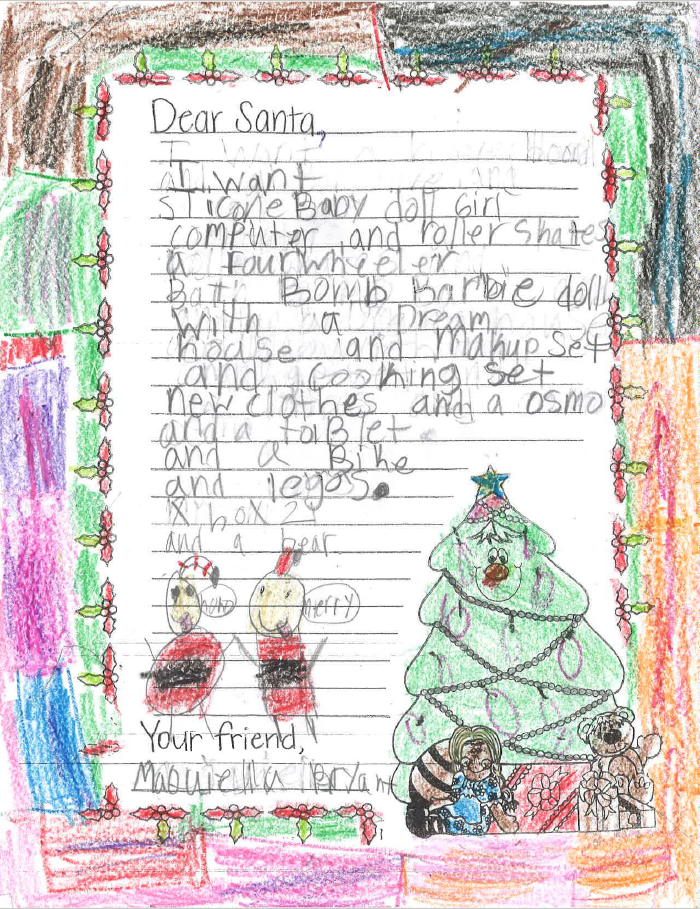 Dear Santa,
I want
slicone Baby doll Girl
computer and roller skates
a fourwheeler
Bath Bomb barbie doll
with a Dream
house and Makup Set
and cooking set
new clothes and a osmo
and a tolBlet
and a Bike
and legos.
X box 2
and a bear
hoho merry
Your friend,
Maquiella Bryant